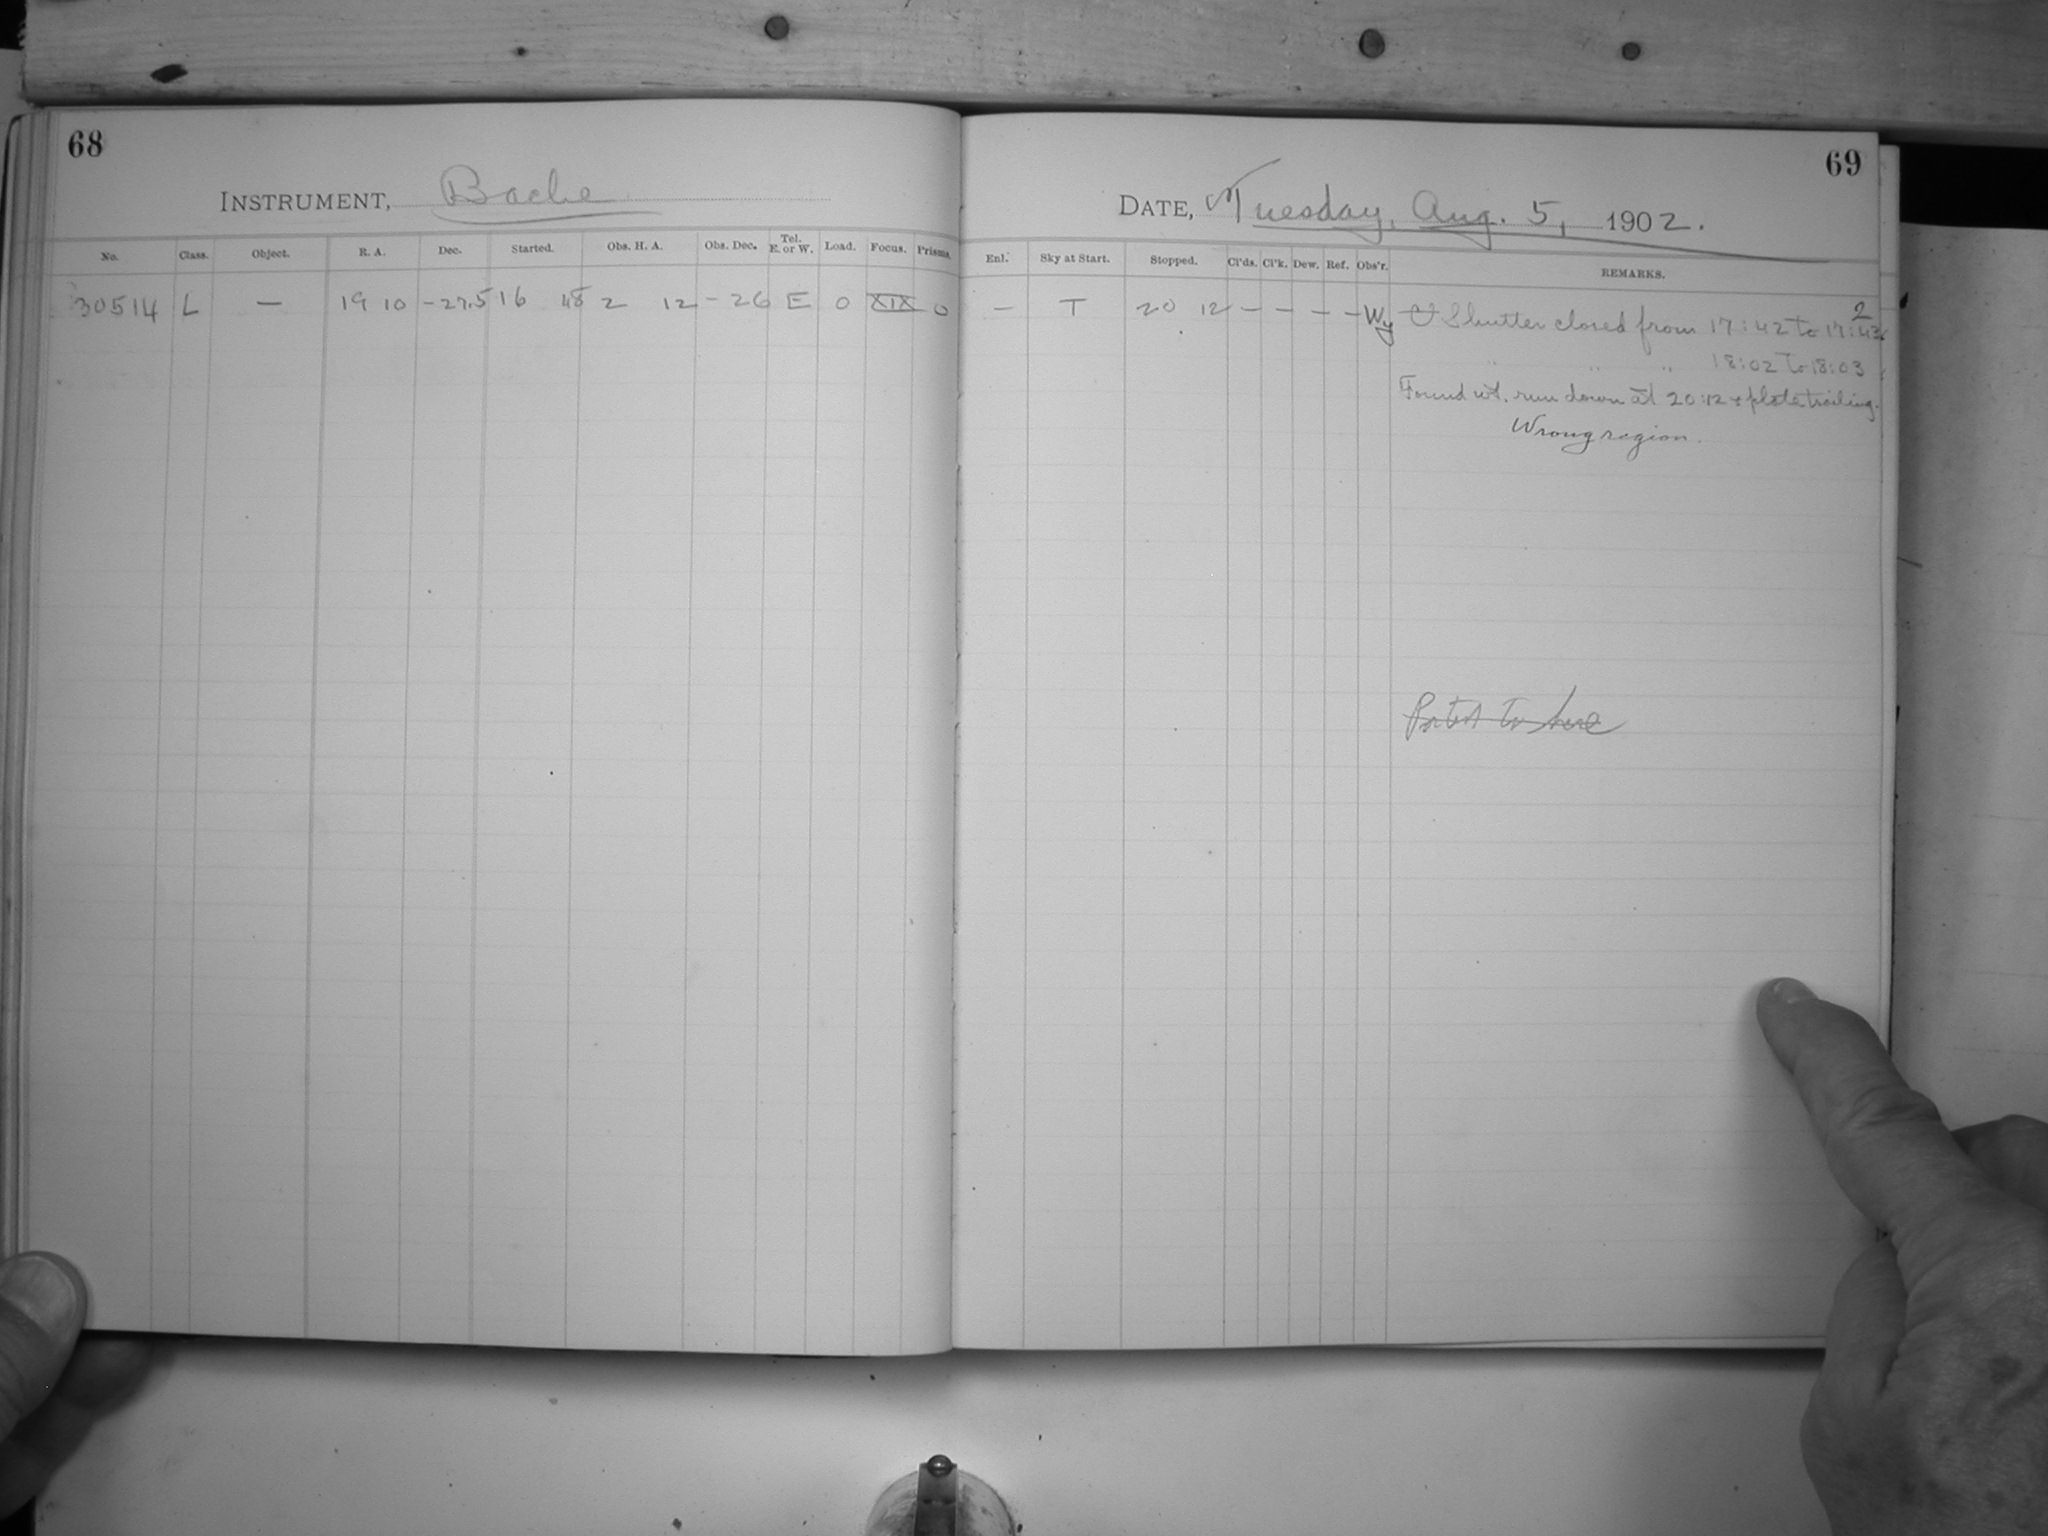 68
INSTRUMENT, Bache
No. Class. Object. R. A. Dec. Started. Obs. H. A. Obs. Dec. Tel. E. or W. Load. Focus. Prisms.
30514 L — 19 10 -27.5 16 48 2 12 -26 E 0 XIX 0
69
DATE, Tuesday, Aug. 5, 1902.
Enl. Sky at Start. Stopped. Cl'ds. Cl'k. Dew. Ref. Obs'r. REMARKS.
— T 20 12 — — — — Wy Shutter closed from 17:42 to 17:43
" " " 18:02 to 18:03
Found wt. run down at 20:12 & plate trailing.
Wrong region.